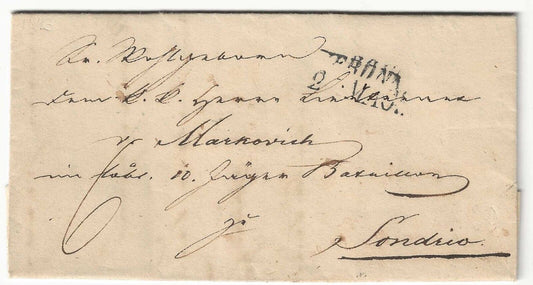 Sr. Wohlgeboren
VERONA
2. MAG.
Dem K. K. Herrn Lieutenant
v Markovich
im löbl. 10. Jäger Bataillon
6
zu
Sondrio